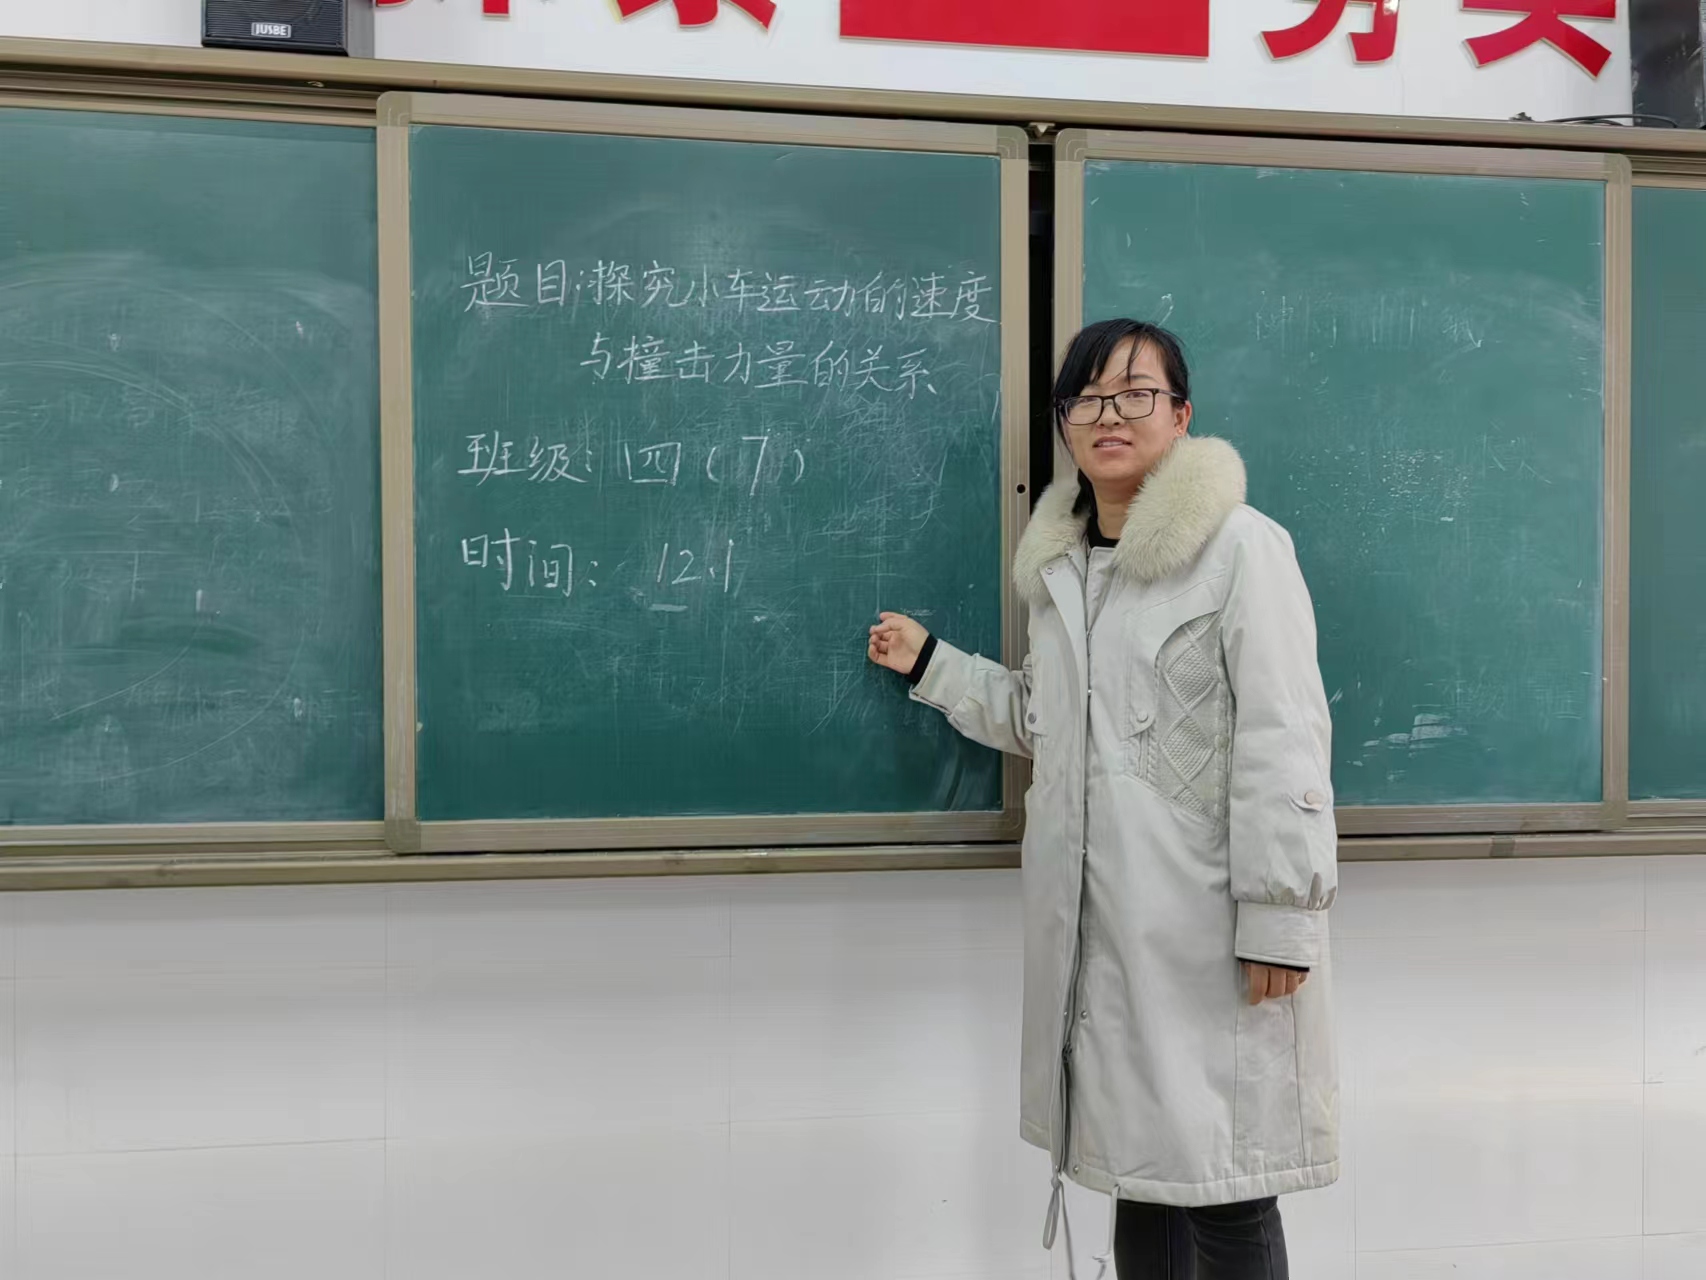 JUSBE
题目:探究小车运动的速度
与撞击力量的关系
班级:四(7)
时间: 12.1